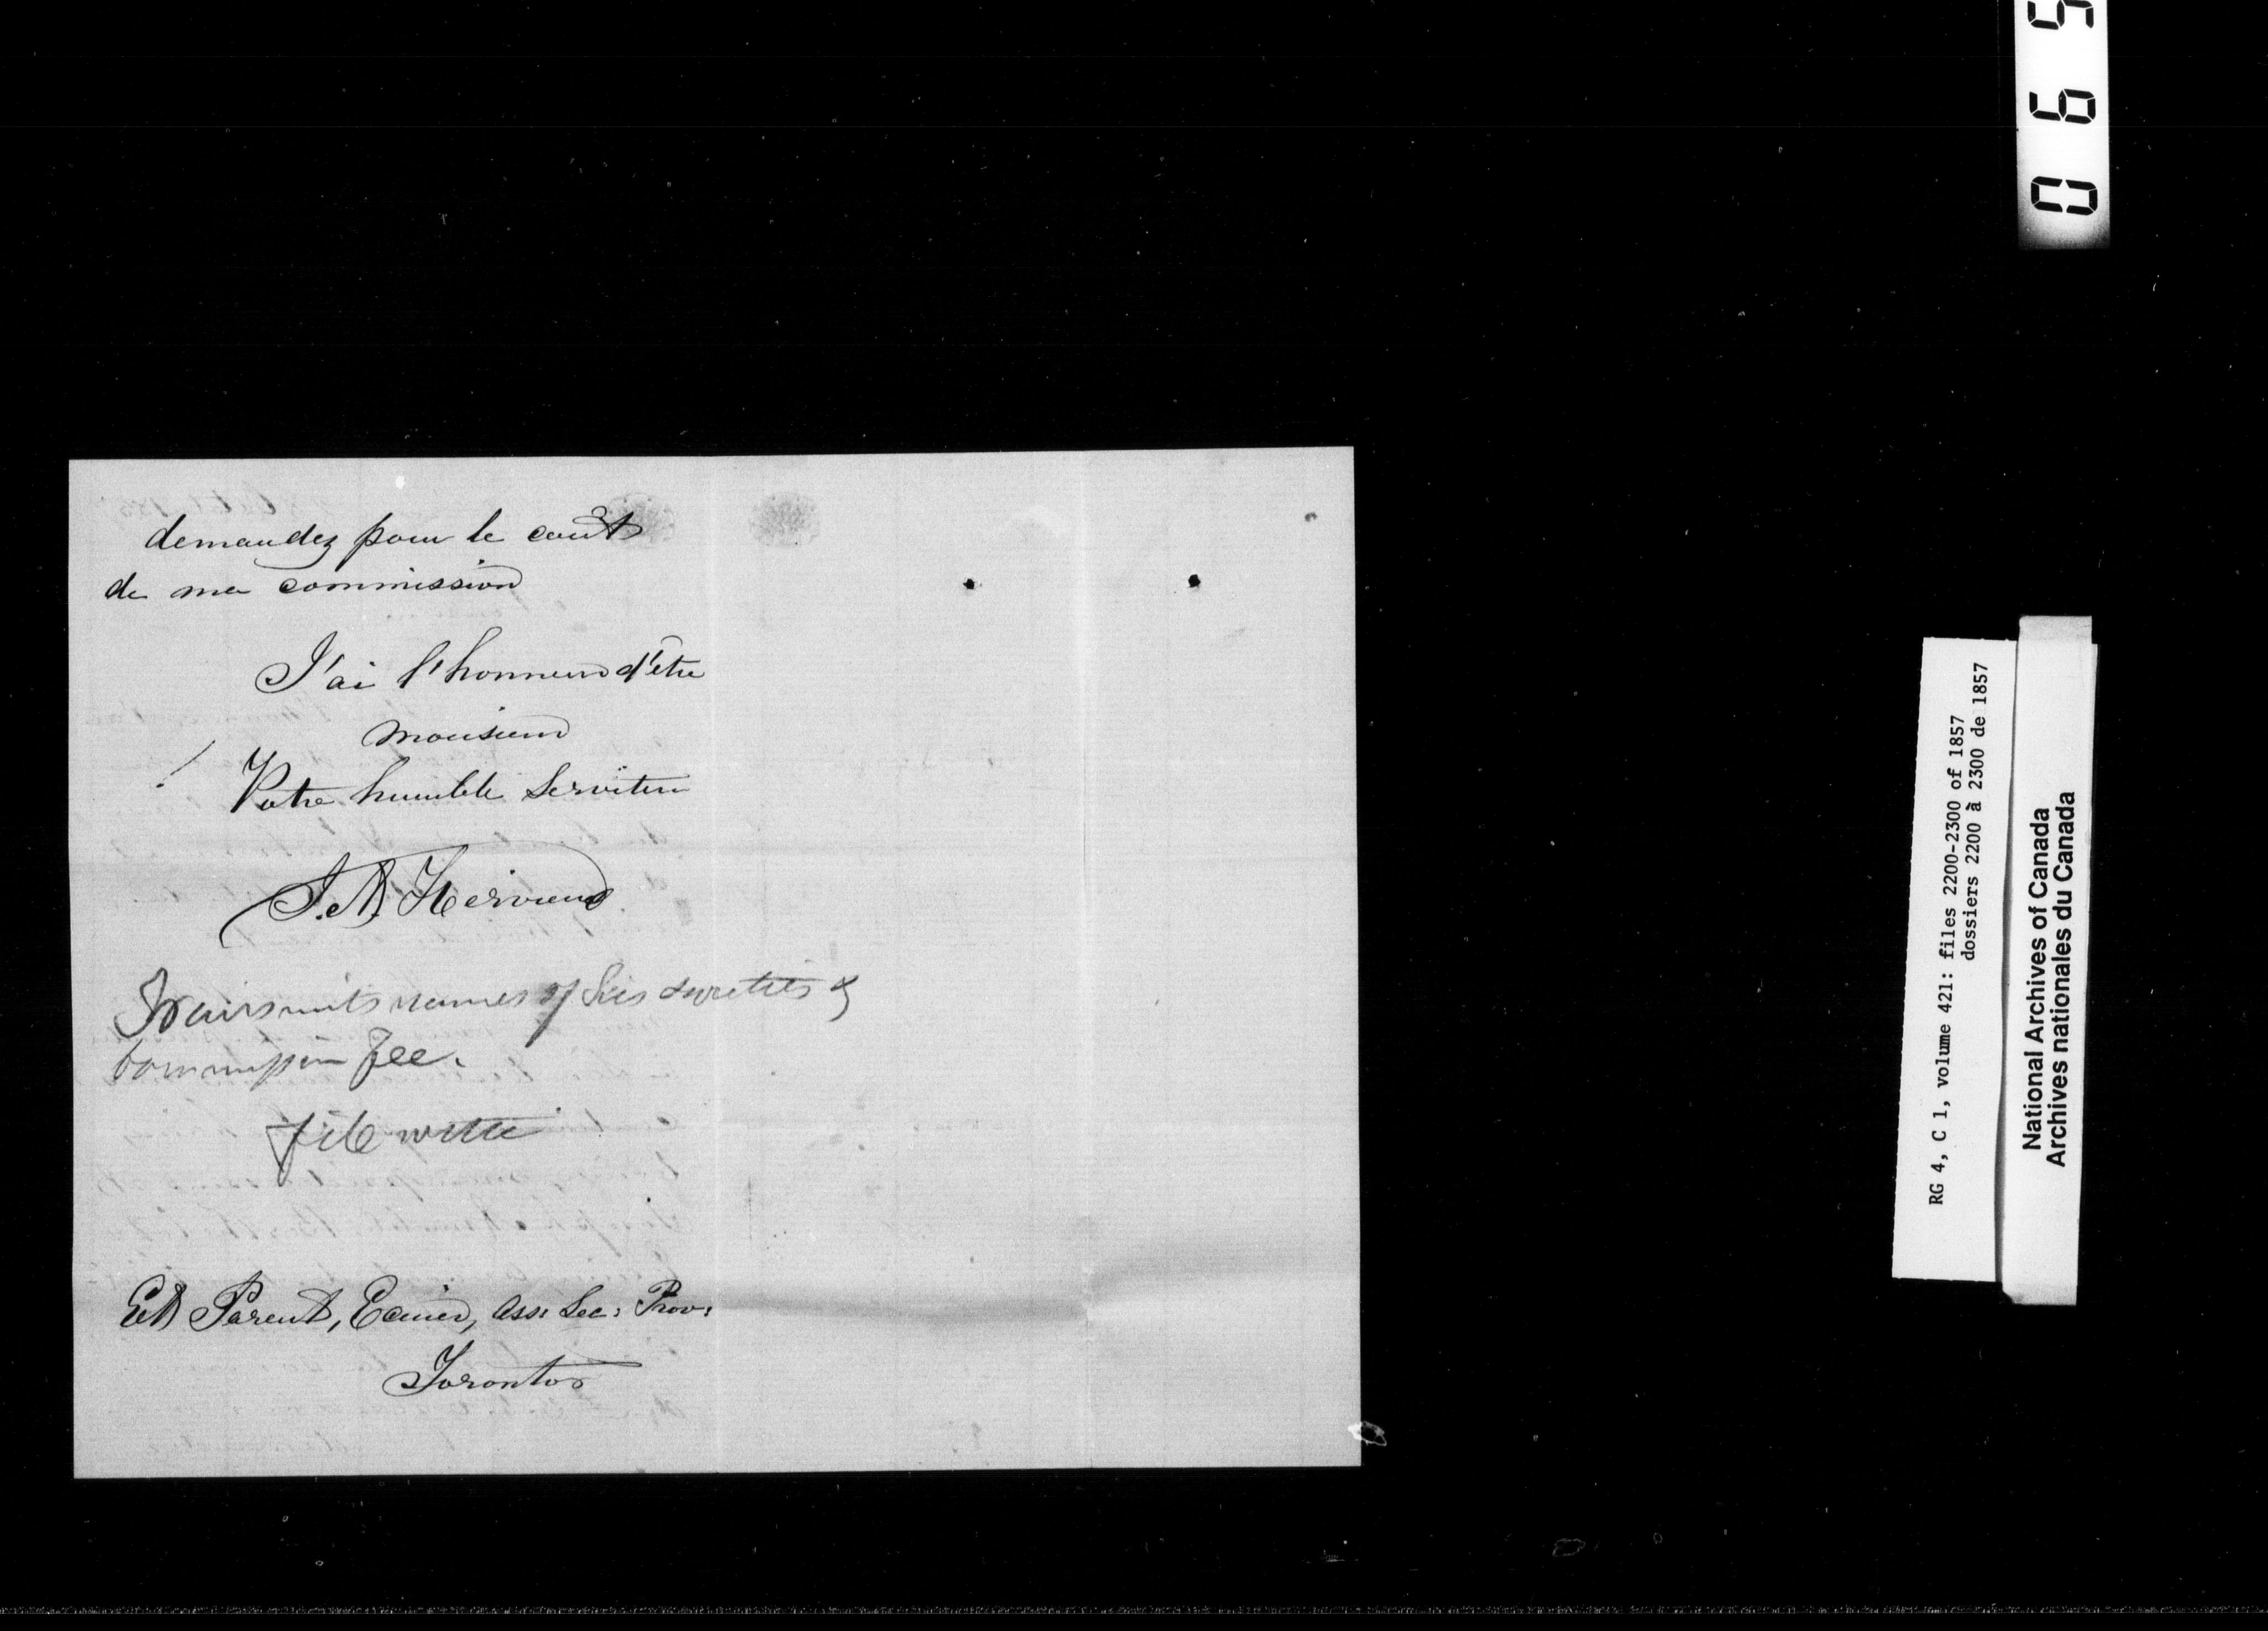 demandez pour le coût
de ma commission
J'ai l'honneur d'être
monsieur
Votre humble Serviteur
J. A. Hervieux
Transmits names of his sureties &
Commission fee.
file with
Et. Parent, Ecuier, Ass: Sec: Prov:
Toronto
069
RG 4, C 1, volume 421: files 2200-2300 of 1857
dossiers 2200 à 2300 de 1857
National Archives of Canada
Archives nationales du Canada